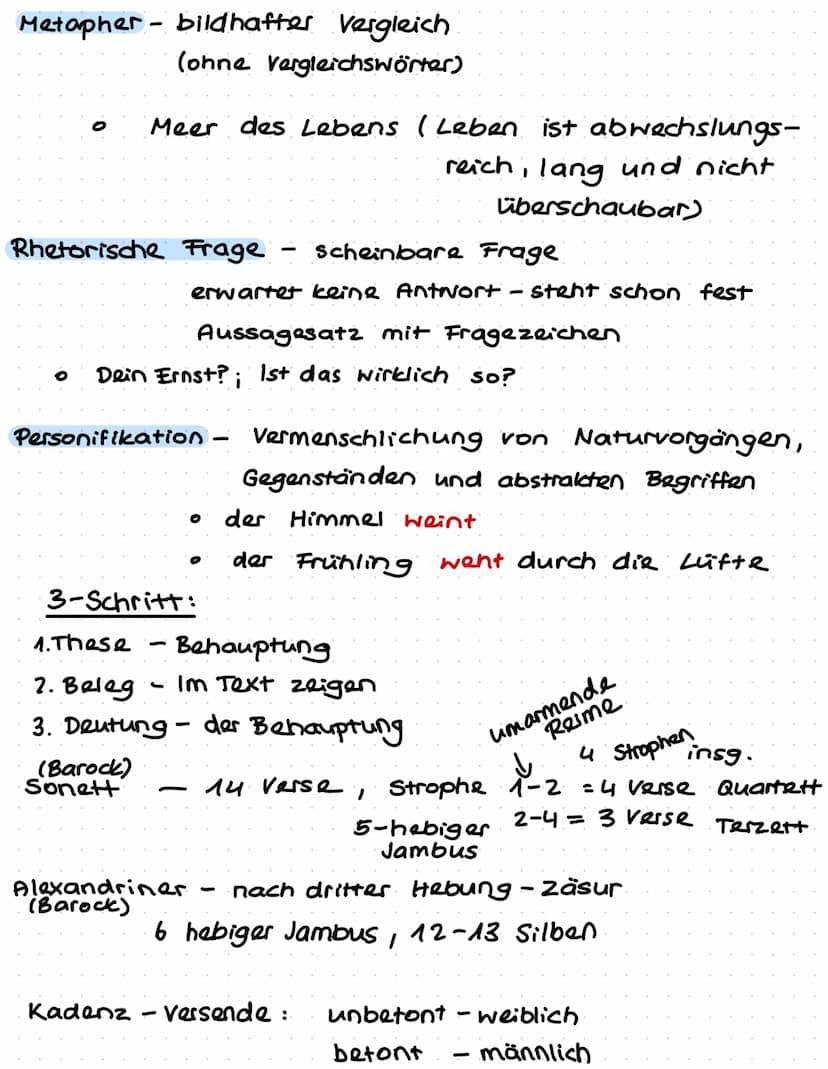 Metapher - bildhafter Vergleich
(ohne Vergleichswörter)
Meer des Lebens (Leben ist abwechslungs-
reich, lang und nicht
überschaubar)
Rhetorische Frage - scheinbare Frage
erwartet keine Antwort - steht schon fest
Aussagesatz mit Fragezeichen
Dein Ernst?; Ist das wirklich so?
Personifikation - Vermenschlichung von Naturvorgängen,
Gegenständen und abstrakten Begriffen
der Himmel weint
der Frühling weht durch die Lüfte
3-Schritt:
1. These - Behauptung
2. Beleg - Im Text zeigen
3. Deutung - der Behauptung
umarmende
Reime
4 Strophen insg.
(Barock)
Sonett - 14 Verse, Strophe 1-2 = 4 Verse Quartett
5-hebiger 2-4 = 3 Verse Terzett
Jambus
Alexandriner - nach dritter Hebung - Zäsur
(Barock)
6 hebiger Jambus, 12-13 Silben
Kadenz - Versende: unbetont - weiblich
betont - männlich